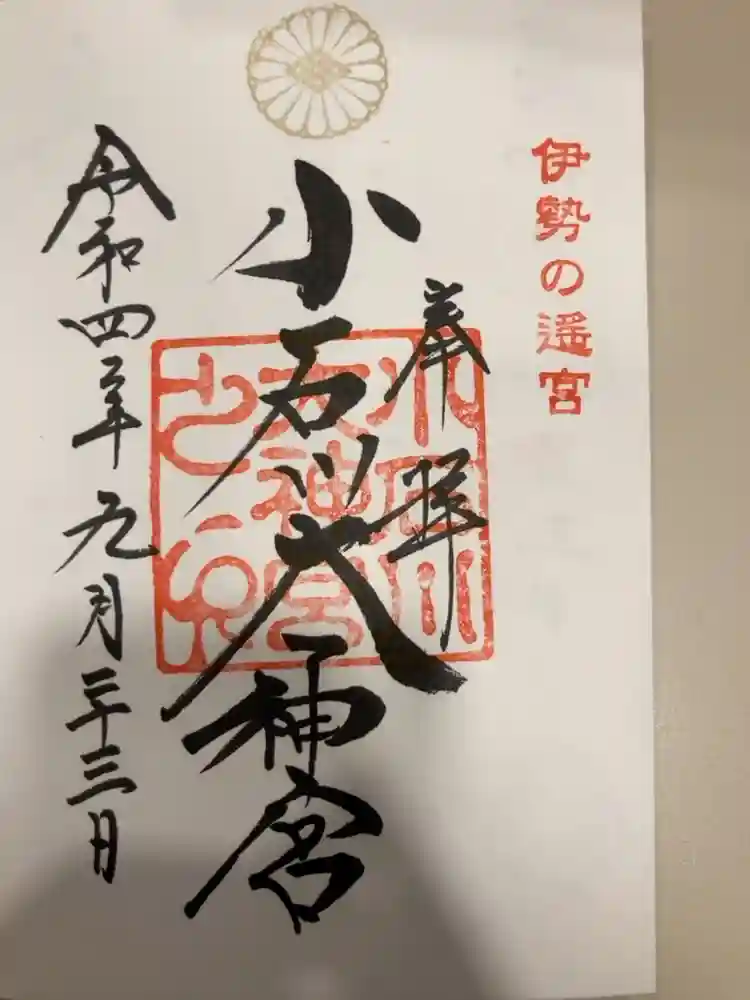 伊勢の遙宮
奉拝
小石川大神宮
小石川
大神宮
之印
令和四年九月二十三日